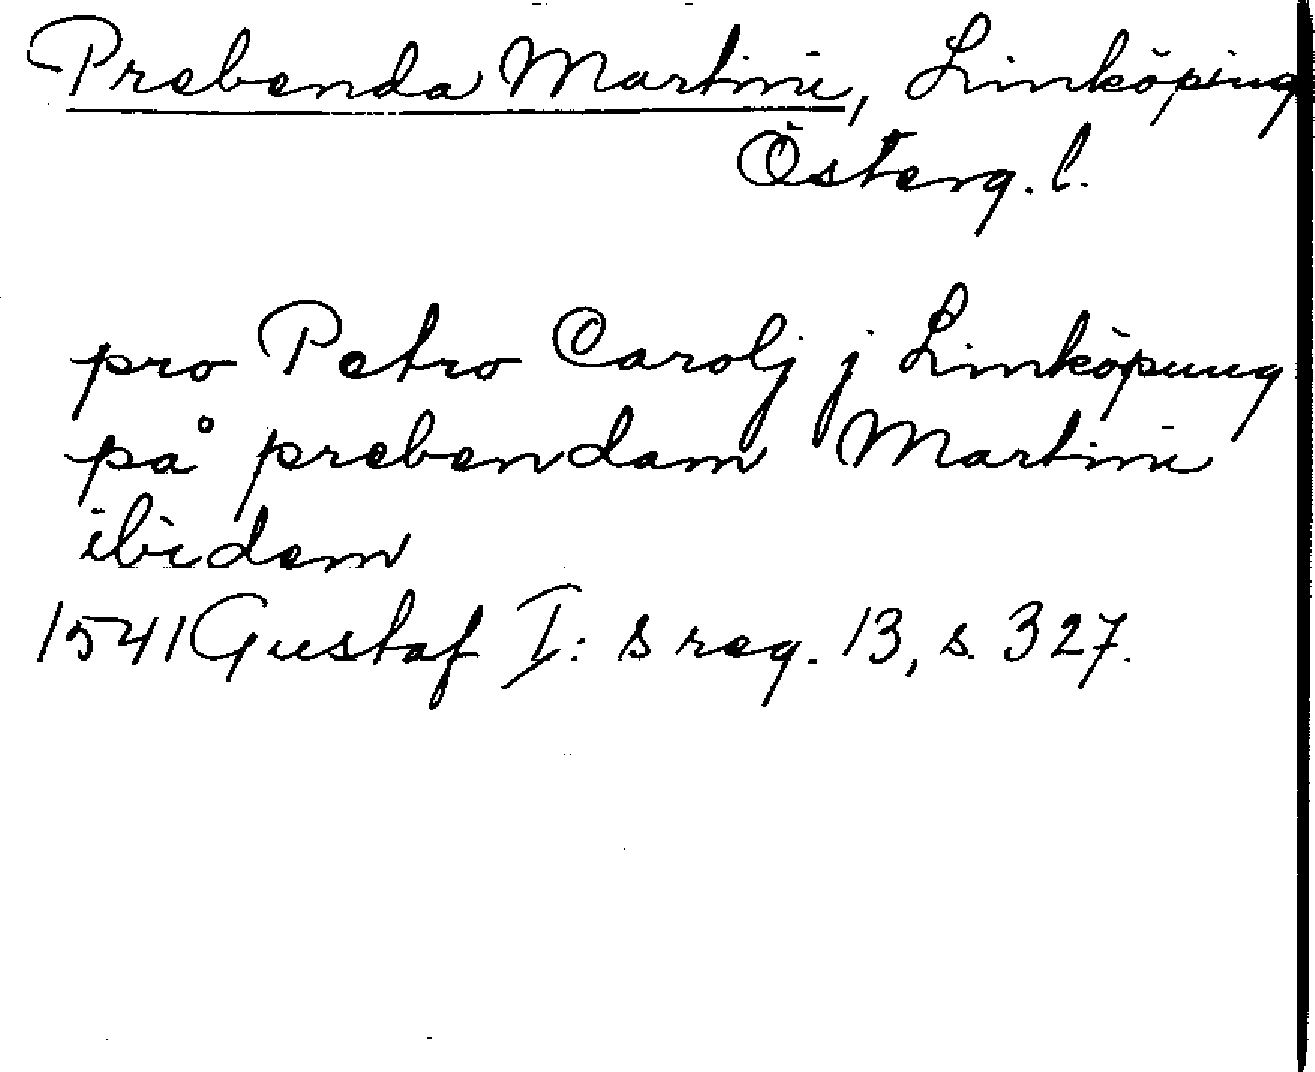 Prebenda Martini, Linköping
Österg. l.
pro Petro Carolj j Linköpung
på prebendam Martini
ibidem
1541 Gustaf I:s reg. 13, s. 327.